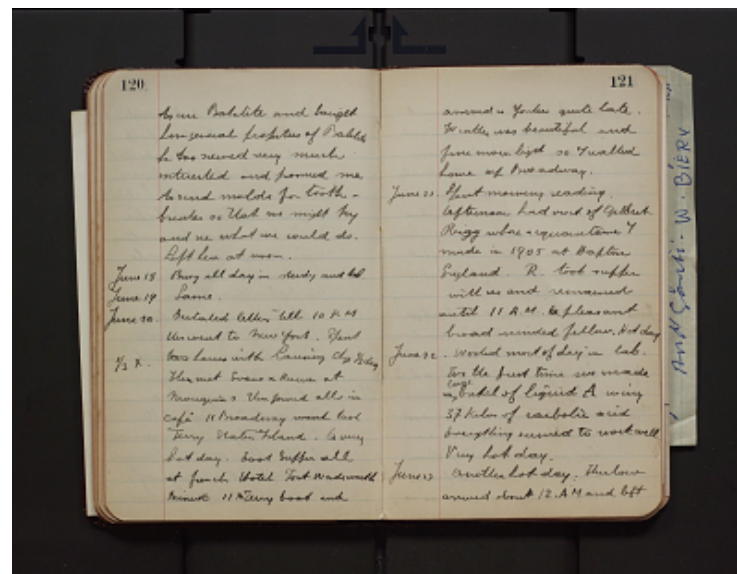 120
to use Bakelite and
general properties of
he too seemed very much
interested and promised me
to send molds for tooth-
brushes so that we might try
and see what we could do.
Left here at noon.
June 18 Busy all day in study and lab
June 19 Same.
June 20. Dictated letters till 10 A.M
then went to New York. Spent
two hours with
then met at
all in
café 11 Broadway went
Ferry Staten Island. A very
hot day. Good supper all
at french Hotel Fort Wadsworth
11 Ferry boat and
121
arrived in Yonkers quite late.
Weather was beautiful and
fine moon light so I walked
home up Broadway.
Spent morning reading.
Afternoon had visit of Gilbert
Rigg whose acquaintance I
made in 1905 at
England. R. took supper
with us and remained
until 11 P.M. A pleasant
broad minded fellow. Hot day
June 22. Worked most of day in lab.
For the first time we made
large batch of liquid A using
37 Kilos of carbolic acid
Everything seemed to work well
Very hot day.
June 23 Another hot day. Thurlow
arrived about 12 A.M and left
W. BIERY